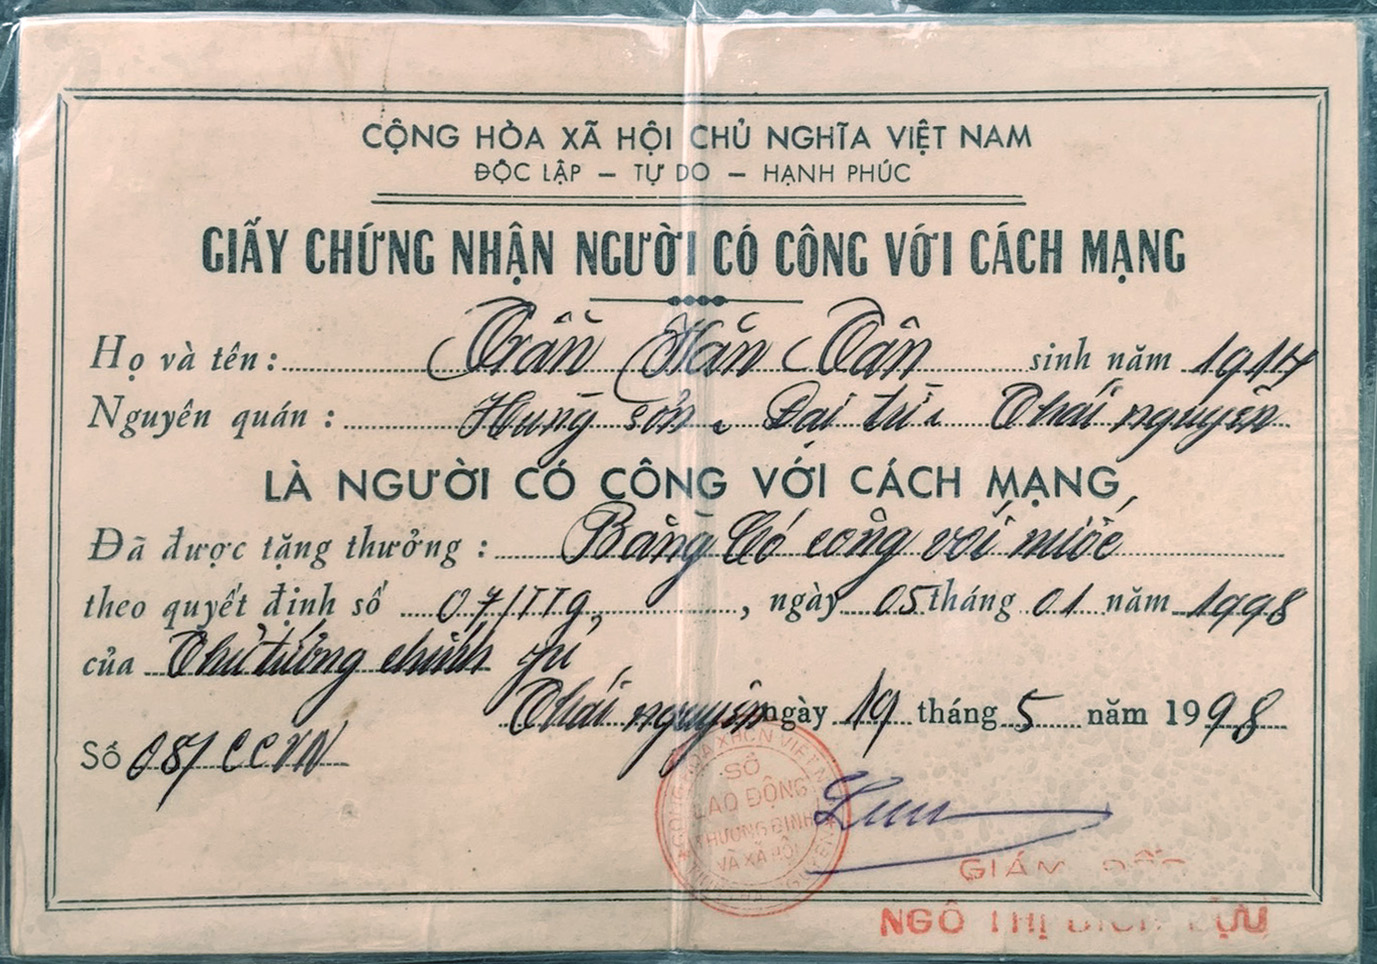 CỘNG HÒA XÃ HỘI CHỦ NGHĨA VIỆT NAM
ĐỘC LẬP — TỰ DO — HẠNH PHÚC
GIẤY CHỨNG NHẬN NGƯỜI CÓ CÔNG VỚI CÁCH MẠNG
Họ và tên: Trần Văn Tân sinh năm 1917
Nguyên quán: Hùng Sơn, Đại từ, Thái nguyên
LÀ NGƯỜI CÓ CÔNG VỚI CÁCH MẠNG
Đã được tặng thưởng: Bằng Có công với nước
theo quyết định số 07/TTg, ngày 05 tháng 01 năm 1998
của Thủ tướng chính phủ
Thái nguyên ngày 19 tháng 5 năm 1998
Số 08/CCVN
SỞ
LAO ĐỘNG
THƯƠNG BINH
VÀ XÃ HỘI
GIÁM ĐỐC
NGÔ THỊ BÍCH